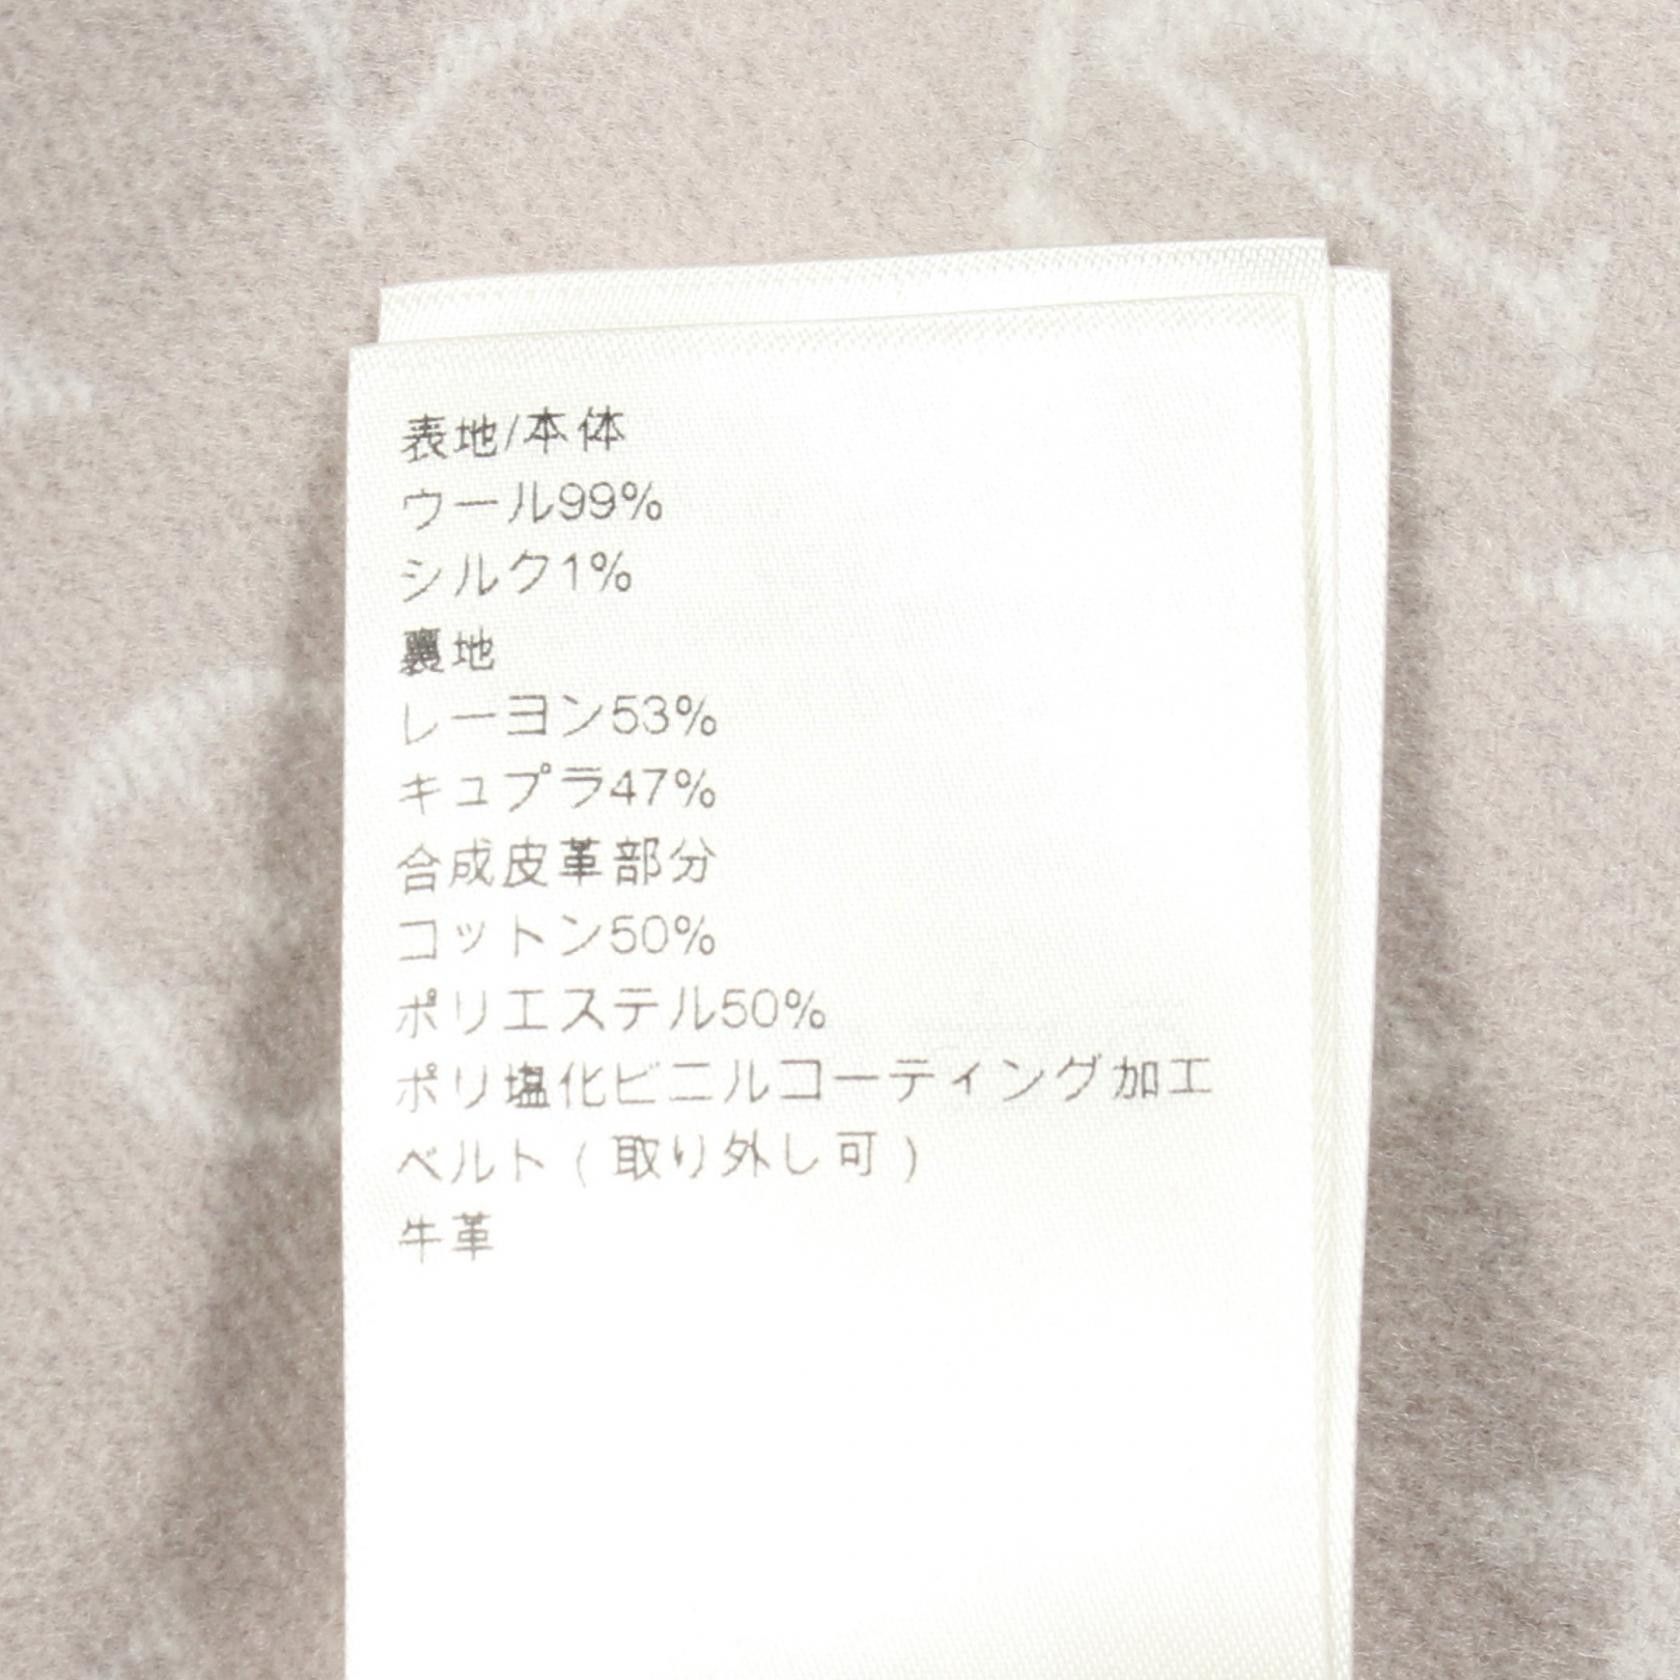 表地/本体
ウール99%
シルク1%
裏地
レーヨン53%
キュプラ47%
合成皮革部分
コットン50%
ポリエステル50%
ポリ塩化ビニルコーティング加工
ベルト ( 取り外し可 )
牛革